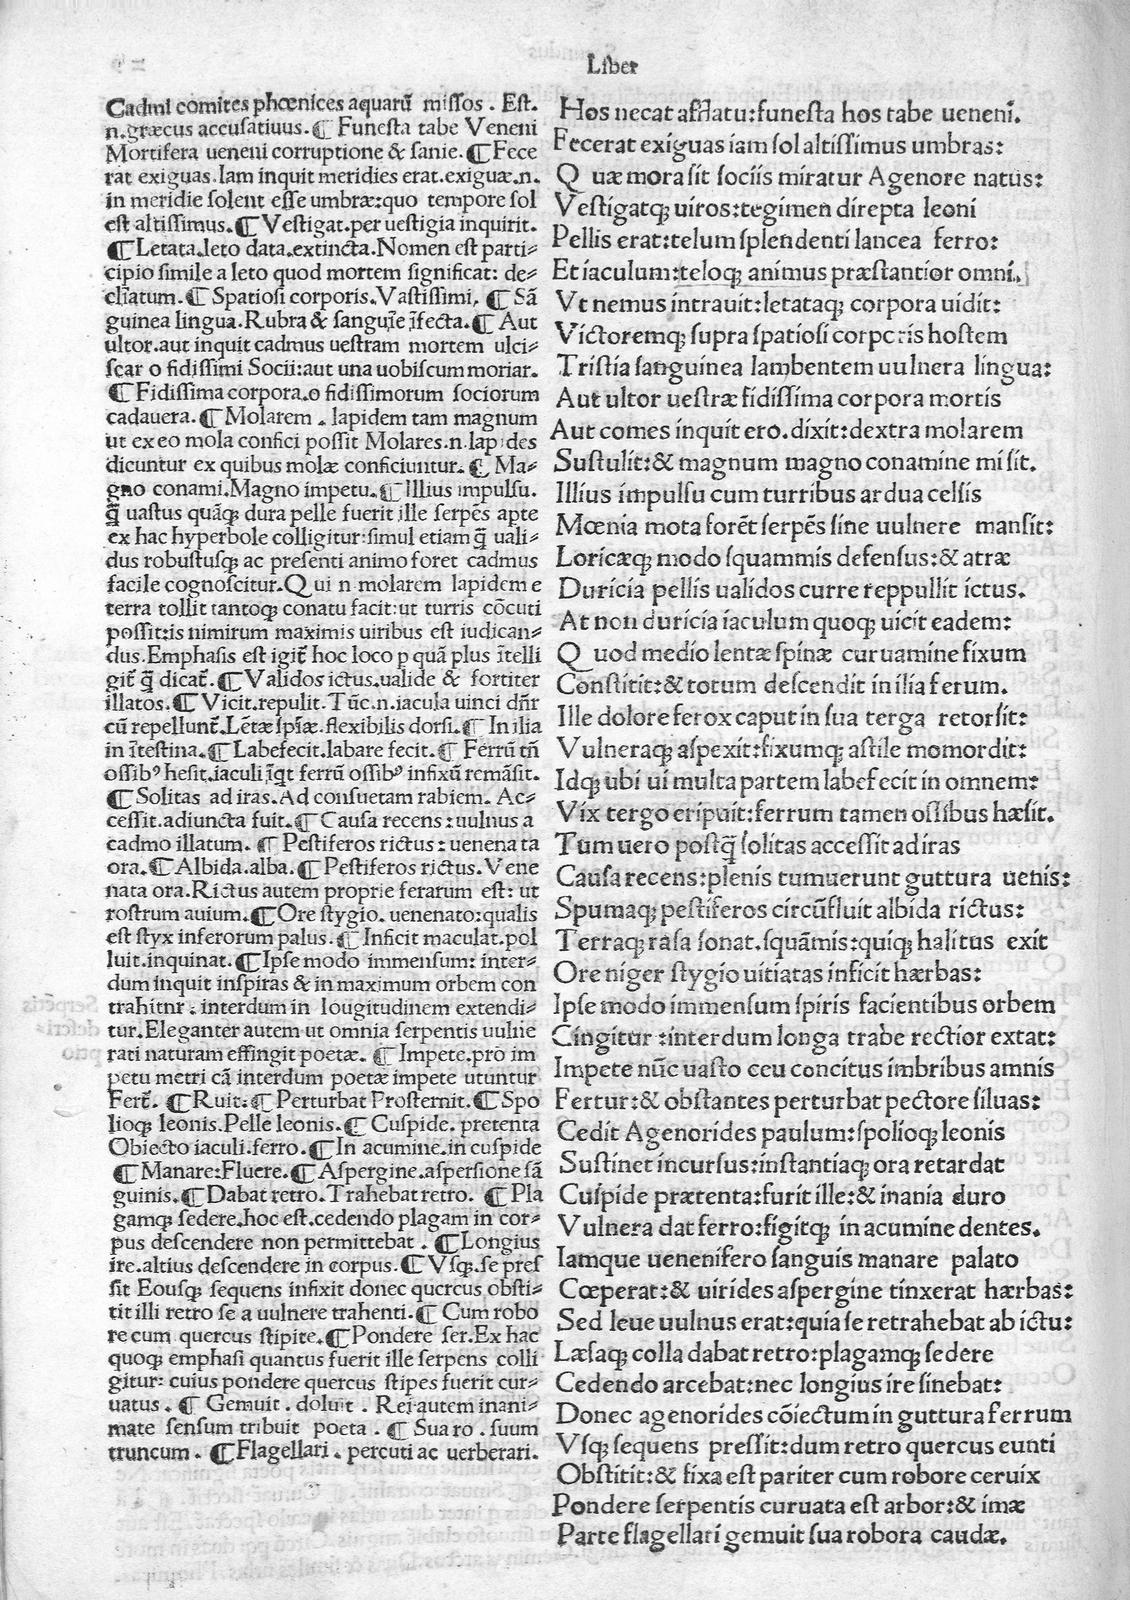 Liber
Cadmi comites phœnices aquarũ missos. Est.
n.græcus accusatiuus.¶ Funesta tabe Veneni
Mortifera ueneni corruptione & sanie.¶Fece
rat exiguas.Iam inquit meridies erat.exiguæ.n.
in meridie solent esse umbræ:quo tempore sol
est altissimus.¶Vestigat.per uestigia inquirit.
¶Letata.leto data.extincta.Nomen est parti-
cipio simile a leto quod mortem significat: de-
cliatum.¶ Spatiosi corporis.Vastissimi. ¶ Sã
guinea lingua.Rubra & sanguĩe ĩfecta.¶ Aut
ultor.aut inquit cadmus uestram mortem ulci-
scar o fidissimi Socii:aut una uobiscum moriar.
¶Fidissima corpora.o fidissimorum sociorum
cadauera.¶Molarem . lapidem tam magnum
ut ex eo mola confici possit Molares.n.lapides
dicuntur ex quibus molæ conficiuntur.¶ Ma-
gno conami.Magno impetu.¶Illius impulsu.
q̃ uastus quãq; dura pelle fuerit ille serpẽs apte
ex hac hyperbole colligitur:simul etiam q̃ uali-
dus robustusq; ac presenti animo foret cadmus
facile cognoscitur.Qui n molarem lapidem e
terra tollit tantoq; conatu facit:ut turris cõcuti
possit:is nimirum maximis uiribus est iudican-
dus.Emphasis est igit̃ hoc loco p quã plus ĩtelli
git̃ q̃ dicat̃.¶Validos ictus.ualide & fortiter
illatos.¶ Vicit.repulit. Tũc.n.iacula uinci dñr
cũ repellunt̃.Lẽtæ spĩæ.flexibilis dorsi.¶ In ilia
in ĩtestina.¶ Labefecit.labare fecit.¶ Ferrũ tñ
ossibꝰ hesit.iaculi ĩqt ferrũ ossibꝰ infixũ remãsit.
¶Solitas ad iras.Ad consuetam rabiem. Ac-
cessit.adiuncta fuit.¶Causa recens:uulnus a
cadmo illatum. ¶ Pestiferos rictus: uenenata
ora.¶Albida.alba.¶Pestiferos rictus. Vene
nata ora.Rictus autem proprie ferarum est: ut
rostrum auium.¶Ore stygio. uenenato:qualis
est styx inferorum palus.¶Inficit maculat.pol
luit.inquinat.¶Ipse modo immensum: inter-
dum inquit inspiras & in maximum orbem con
trahitnr: interdum in lougitudinem extendi-
tur.Eleganter autem ut omnia serpentis uulne
rati naturam effingit poetæ. ¶Impete.pro im
petu metri cã interdum poetæ impete utuntur
Fert̃. ¶Ruit.¶ Perturbat Prosternit.¶ Spo
lioq; leonis.Pelle leonis.¶ Cuspide. pretenta
Obiecto iaculi.ferro.¶In acumine.in cuspide
¶Manare:Fluere.¶Aspergine.aspersione sã
guinis.¶Dabat retro. Trahebat retro. ¶Pla
gamq; sedere.hoc est.cedendo plagam in cor-
pus descendere non permittebat . ¶Longius
ire.altius descendere in corpus.¶ Vsq.se pres
sit Eousq; sequens infixit donec quercus obsti-
tit illi retro se a uulnere trahenti.¶ Cum robo
re cum quercus stipite.¶Pondere ser.Ex hac
quoq; emphasi quantus fuerit ille serpens colli
gitur: cuius pondere quercus stipes fuerit cur-
uatus . ¶ Gemuit . doluit . Rei autem inani-
mate sensum tribuit poeta . ¶ Sua ro . suum
truncum . ¶Flagellari . percuti ac uerberari.
Hos necat afflatu:funesta hos tabe ueneni.
Fecerat exiguas iam sol altissimus umbras:
Quæ mora sit sociis miratur Agenore natus:
Vestigatq; uiros:tegimen direpta leoni
Pellis erat:telum splendenti lancea ferro:
Et iaculum:teloq; animus præstantior omni.
Vt nemus intrauit:letataq; corpora uidit:
Victoremq; supra spatiosi corporis hostem
Tristia sanguinea lambentem uulnera lingua:
Aut ultor uestræ fidissima corpora mortis
Aut comes inquit ero.dixit:dextra molarem
Sustulit:& magnum magno conamine misit.
Illius impulsu cum turribus ardua celsis
Mœnia mota forẽt serpẽs sine uulnere mansit:
Loricæq; modo squammis defensus:& atræ
Duricia pellis ualidos curre reppullit ictus.
At non duricia iaculum quoq; uicit eadem:
Quod medio lentæ spinæ curuamine fixum
Constitit:& totum descendit in ilia ferum.
Ille dolore ferox caput in sua terga retorsit:
Vulneraq; aspexit:fixumq; astile momordit:
Idq; ubi ui multa partem labefecit in omnem:
Vix tergo eripuit:ferrum tamen ossibus hæsit.
Tum uero postq̃ solitas accessit ad iras
Causa recens:plenis tumuerunt guttura uenis:
Spumaq; pestiferos circũfluit albida rictus:
Terraq; rasa sonat.squãmis:quiq; halitus exit
Ore niger stygio uitiatas inficit hærbas:
Ipse modo immensum spiris facientibus orbem
Cingitur :interdum longa trabe rectior extat:
Impete nũc uasto ceu concitus imbribus amnis
Fertur:& obstantes perturbat pectore siluas:
Cedit Agenorides paulum:spolioq; leonis
Sustinet incursus:instantiaq; ora retardat
Cuspide prætenta:furit ille:& inania duro
Vulnera dat ferro:figitq; in acumine dentes.
Iamque uenenifero sanguis manare palato
Cœperat:& uirides aspergine tinxerat hærbas:
Sed leue uulnus erat:quia se retrahebat ab ictu:
Læsaq; colla dabat retro:plagamq; sedere
Cedendo arcebat:nec longius ire sinebat:
Donec agenorides cõiectum in guttura ferrum
Vsq; sequens pressit:dum retro quercus eunti
Obstitit:& fixa est pariter cum robore ceruix
Pondere serpentis curuata est arbor:& imæ
Parte flagellari gemuit sua robora caudæ.